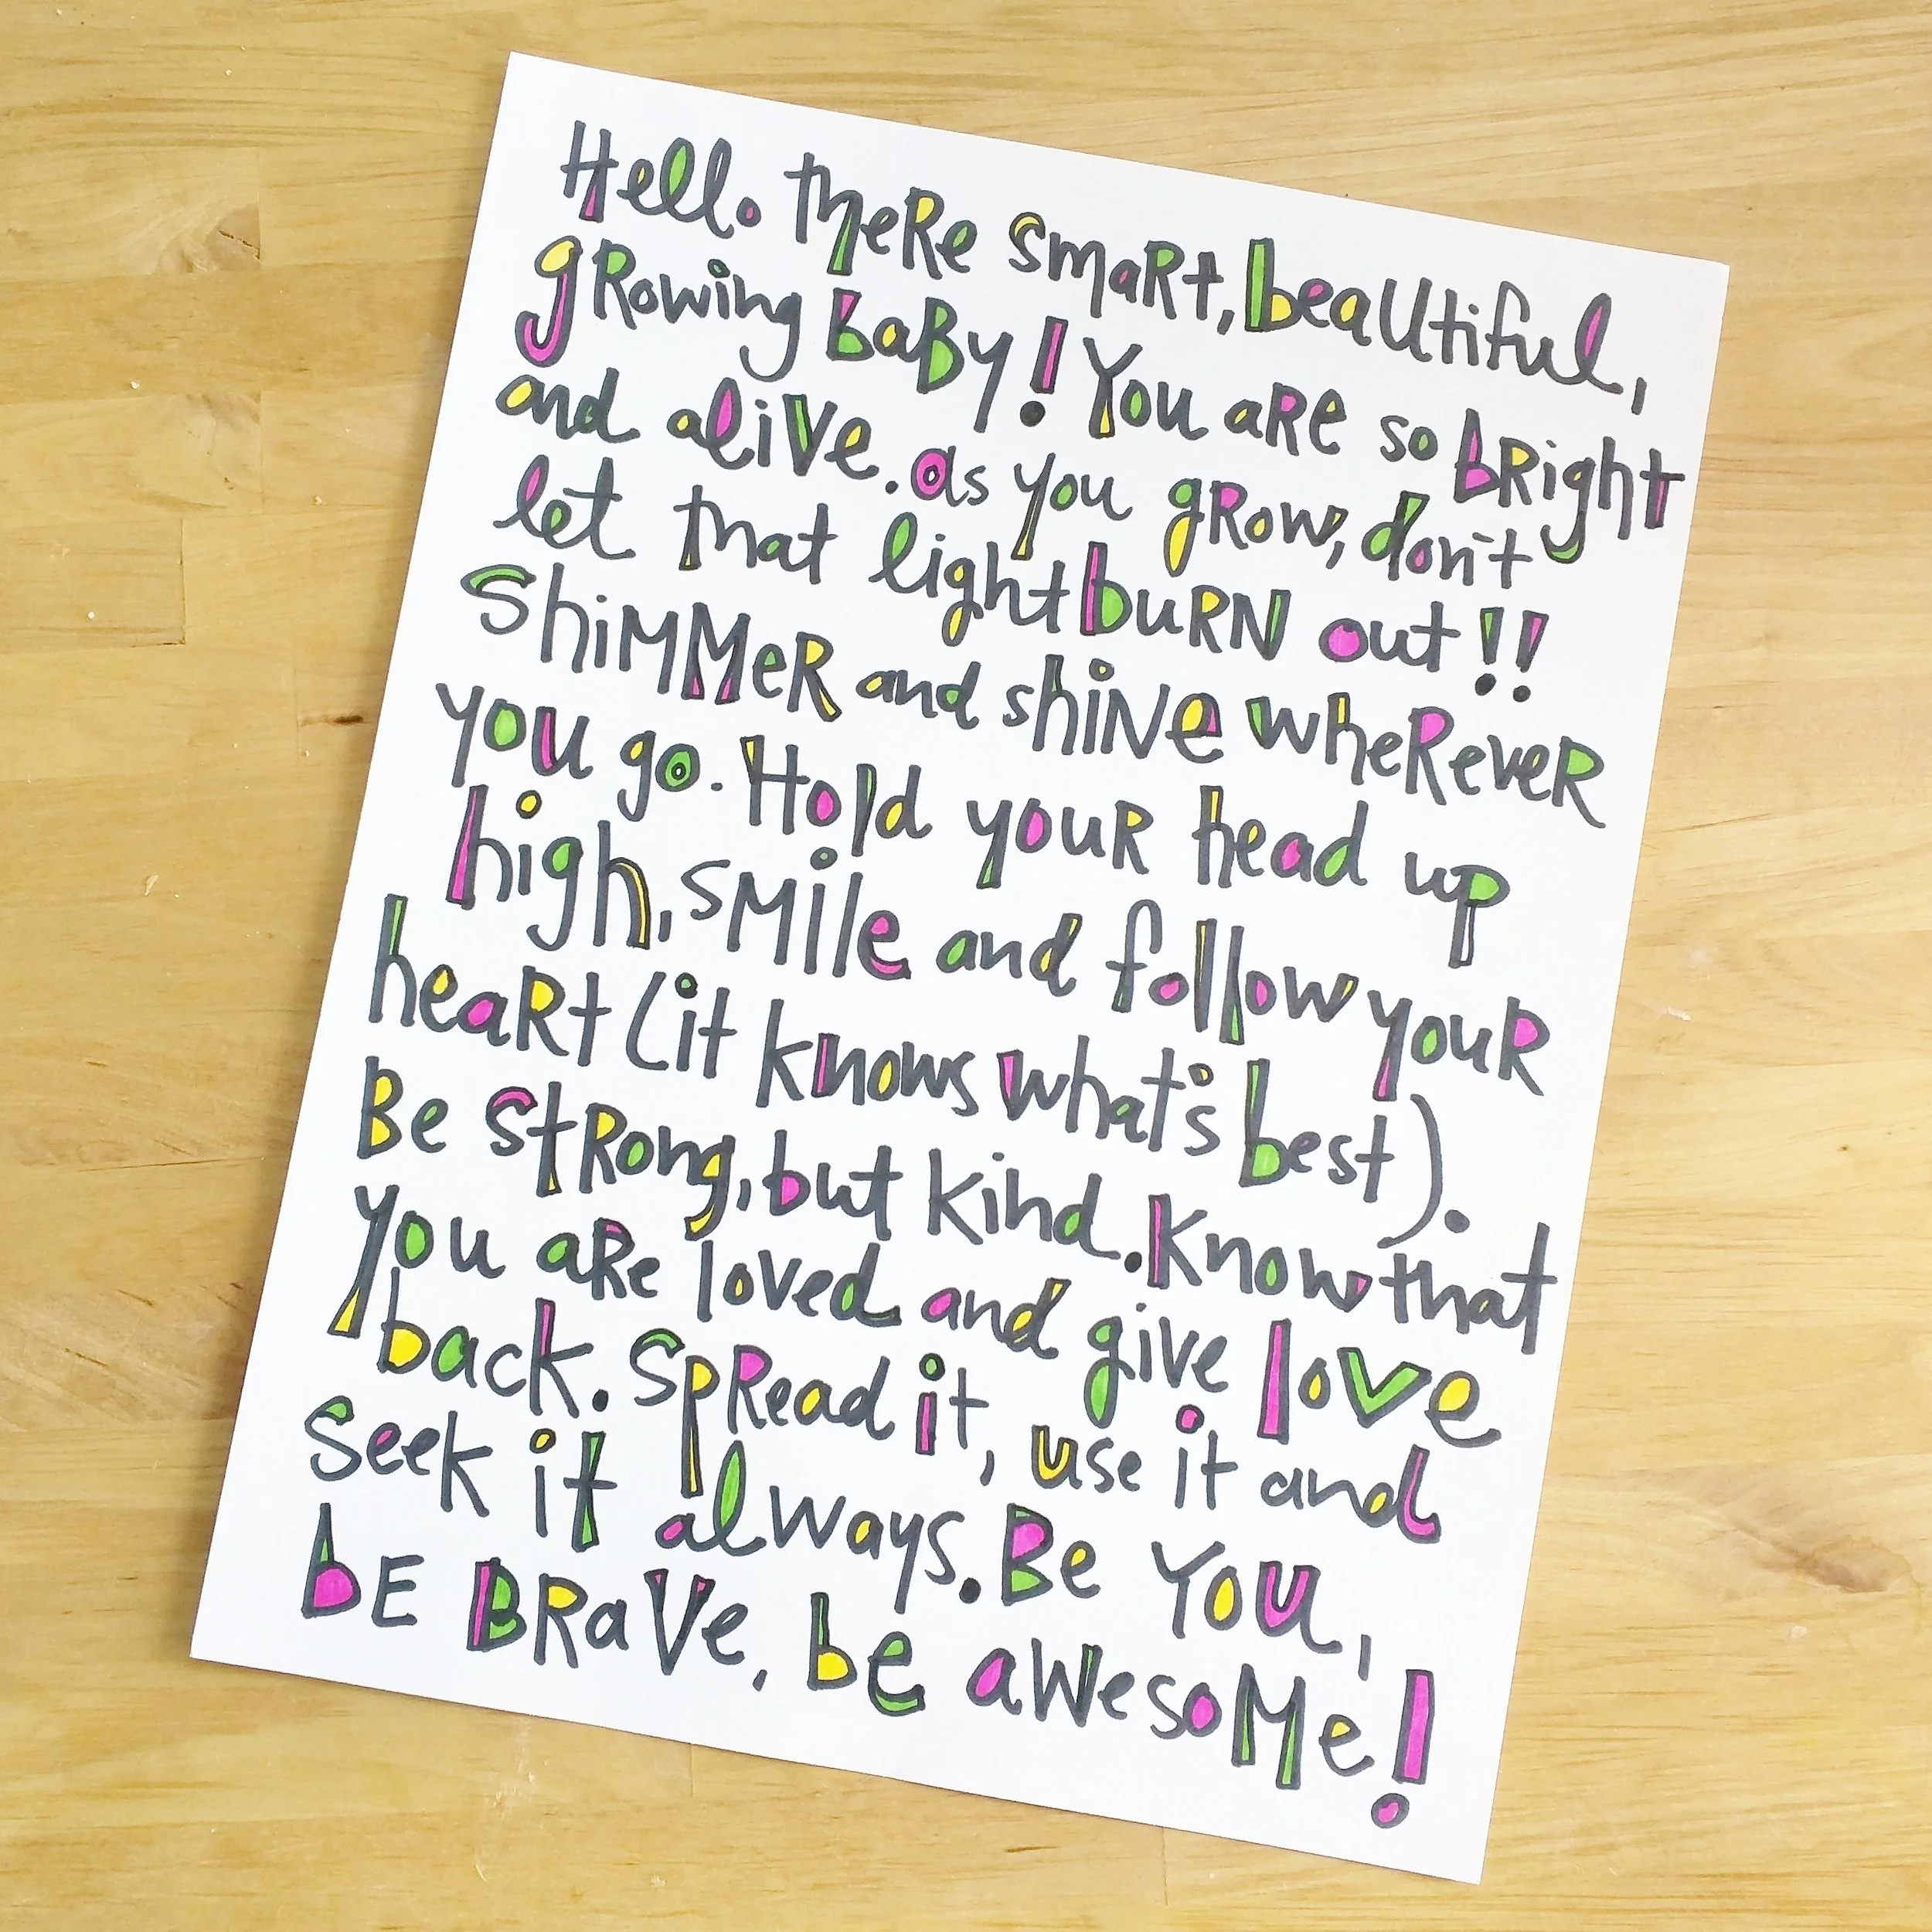 Hello theRe smaRt, beautiful,
gRowing baBy! You aRe so bRight
and alive. as you gRow, don't
let that light buRN out!!
ShiMMeR and shiNe wheReveR
you go. Hold youR head up
high, sMile and follow youR
heaRt (it knows what's best).
Be stRong, but kind. Know that
you aRe loved and give love
back. SpRead it, use it and
seek it always. Be You,
bE BRaVe, be aWesoMe!